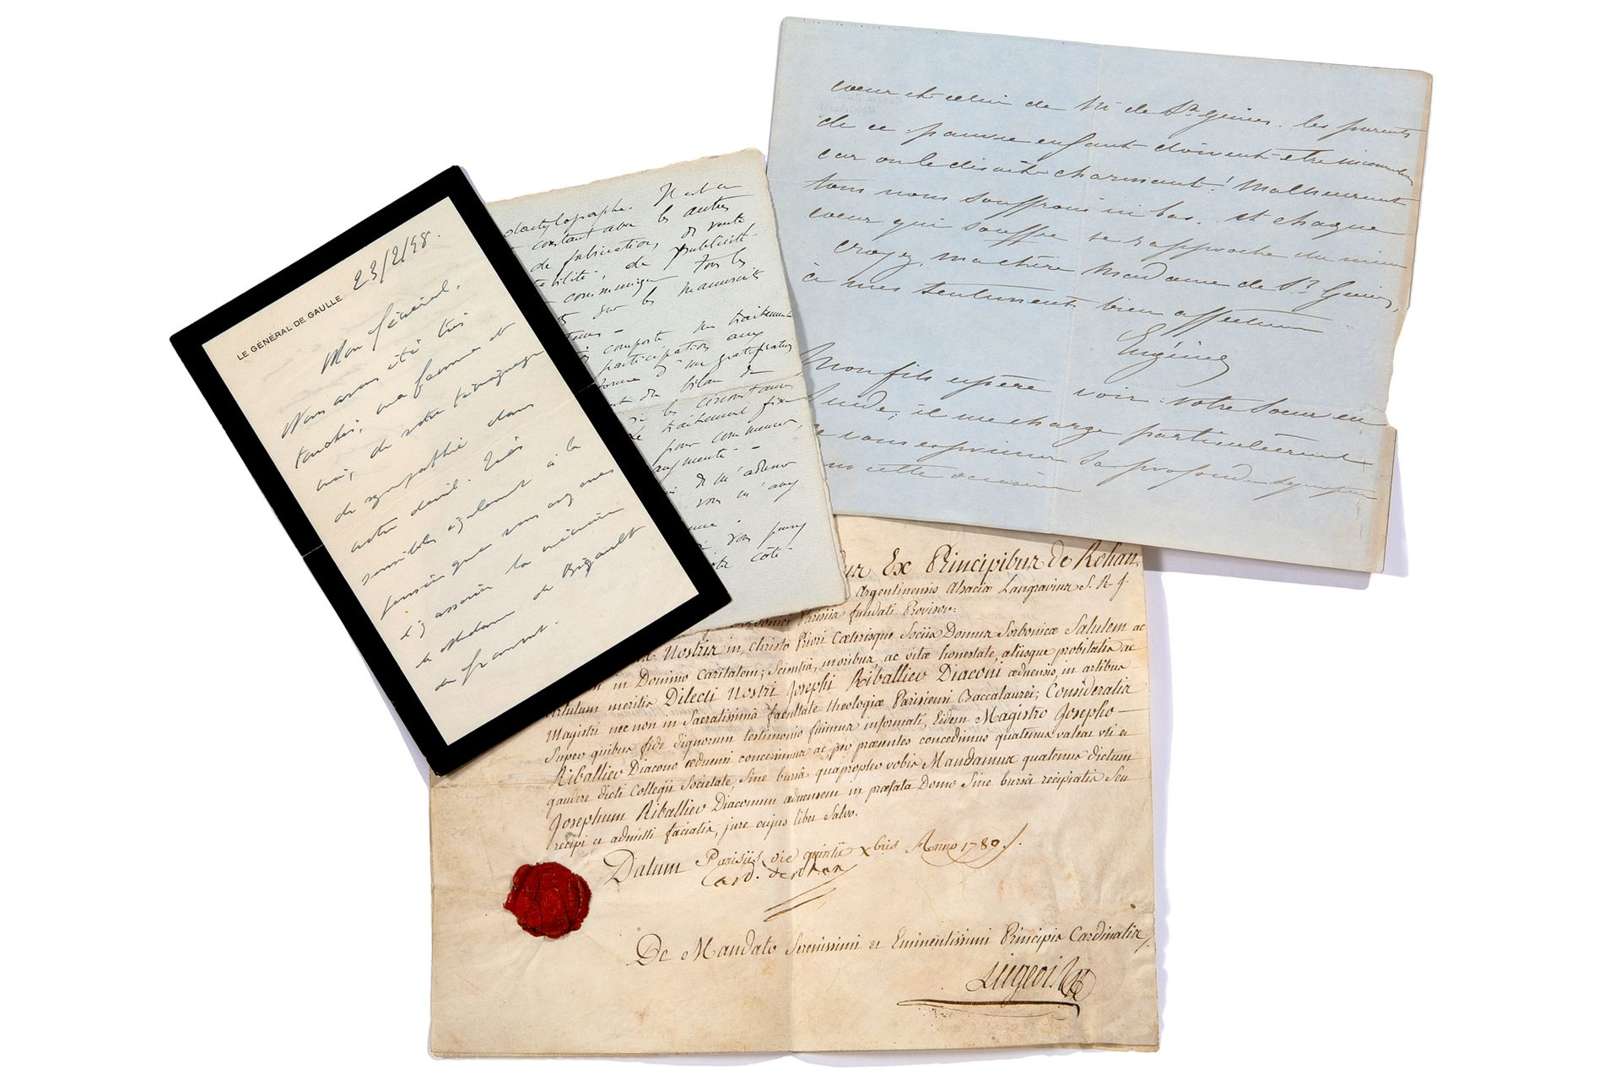 LE GÉNÉRAL DE GAULLE
23/2/48.
Mon général,
Nous avons été très
touchés, ma femme et
moi, de votre témoignage
de sympathie dans
notre deuil. Très
sensibles également à la
pensée que vous avez eue
d'y associer la mémoire
de Madame de
dactylographe. Il est en
constant avec les autres
de publication, de vente
de publicité.
communique tous les
sur les manuscrits
comporte un traitement
participation aux
forme d'une gratification
du bilan de
les circonstances
traitement fixe
pour commencer,
augmenté.
de m'adresser
vous m'avez
côté.
cœur et celui de Me de St Geniès. les parents
de ce pauvre enfant doivent être
car on le disait charmant! Malheureusement
tous nous souffrons ici bas. et chaque
cœur qui souffre se rapproche du mien
croyez, ma chère Madame de St Geniès,
à mes sentiments bien affectueux
Eugénie
Mon fils espère voir votre sœur en
Suède, il me charge particulièrement
de vous exprimer sa profonde sympathie
en cette occasion
Ex Principibus de Rohan,
Argentinensis Alsaciæ Langravius S. R. J.
fundati Provisor:
Nostris in Christo Priori Cæterisque Sociis Domus Sorbonicæ Salutem ac
in Domino Caritatem; Scientia, moribus, ac vitæ honestate, aliisque probitatis ac
virtutum meritis Dilecti Nostri Josephi Riballier Diaconi aduensis, in artibus
Magistri nec non in Sacratissimâ facultate theologiæ Parisiensi Baccalaurei; Consideratis
Super quibus fide dignorum testimonio fuimus informati, Eidem Magistro Josepho
Riballier Diacono æduensi concessimus ac pro præsentes concedimus quatenus valeat uti et
gaudere dicti Collegii Societate, Sine bursâ quapropter vobis Mandamus quatenus dictum
Josephum Riballier Diaconum aduensem in præfata Domo Sine bursâ recipiatis Seu
recipi et admitti faciatis, jure cujus libet Salvo.
Datum Parisiis die quintâ xbris Anno 1780
Card. de Rohan
De Mandato Serenissimi et Eminentissimi Principis Cardinalis